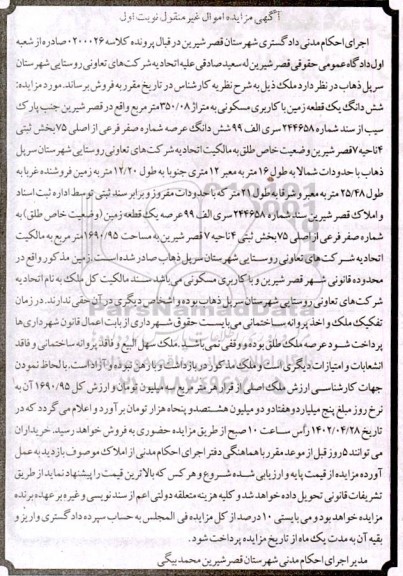 آگهی مزایده اموال غیرمنقول نوبت اول
اجرای احکام مدنی دادگستری شهرستان قصر شیرین در قبال پرونده کلاسه ۰۲۰۰۰۲۶ صادره از شعبه
اول دادگاه عمومی حقوقی قصر شیرین له سعید صادقی علیه اتحادیه شرکت های تعاونی روستایی شهرستان
سرپل ذهاب در نظر دارد ملک ذیل به شرح نظریه کارشناس در تاریخ مقرر به فروش برساند. مورد مزایده:
شش دانگ یک قطعه زمین با کاربری مسکونی به متراژ ۳۵۰/۰۸ متر مربع واقع در قصر شیرین جنب پارک
سیب از سند شماره ۲۴۴۶۵۸ سری الف ۹۹ شش دانگ عرصه شماره صفر فرعی از اصلی ۷۵ بخش ثبتی
۴ ناحیه ۷ قصر شیرین وضعیت خاص طلق به مالکیت اتحادیه شرکت های تعاونی روستایی شهرستان سرپل
ذهاب با حدودات شمالا به طول ۱۶ متر به معبر ۱۲ متری جنوبا به طول ۱۲/۲۰ متر به زمین فروشنده غربا به
طول ۲۵/۴۸ متر به معبر و شرقا به طول ۲۱ متر که با حدودات مفروز و برابر سند ثبتی توسط اداره ثبت اسناد
و املاک قصر شیرین سند شماره ۲۴۴۶۵۸ سری الف ۹۹ عرصه یک قطعه زمین (وضعیت خاص طلق) به
شماره صفر فرعی از اصلی ۷۵ بخش ثبتی ۴ ناحیه ۷ قصر شیرین به مساحت ۱۶۹۰/۹۵ متر مربع به مالکیت
اتحادیه شرکت های تعاونی روستایی شهرستان سرپل ذهاب صادر شده است. زمین مذکور واقع در
محدوده قانونی شهر قصر شیرین و با کاربری مسکونی می باشد سند مالکیت کل ملک به نام اتحادیه
شرکت های تعاونی روستایی شهرستان سرپل ذهاب بوده و اشخاص دیگری در آن حقی ندارند. در زمان
تفکیک ملک و اخذ پروانه ساختمانی می بایست حقوق شهرداری از بابت اعمال قانون شهرداری ها
پرداخت شود عرصه ملک طلق بوده و وقفی نمی باشید. ملک سهل البیع و فاقد پروانه ساختمانی و فاقد
انشعابات و امتیازات دیگری است و ملک مذکور در بازداشت و یا رهن نبوده و آزاد است. با لحاظ نمودن
جهات کارشناسی ارزش ملک اصلی از قرار هر متر مربع سه میلیون تومان و ارزش کل ۱۶۹۰/۹۵ آن به
نرخ روز مبلغ پنج میلیارد و هفتاد و دو میلیون هشتصد و پنجاه هزار تومان برآورد و اعلام می گردد که در
تاریخ ۱۴۰۲/۰۴/۲۸ رأس ساعت ۱۰ صبح از طریق مزایده حضوری به فروش خواهد رسید. خریداران
می توانند ۵ روز قبل از موعد مقرر با هماهنگی دفتر اجرای احکام مدنی از املاک موصوف بازدید به عمل
آورده مزایده از قیمت پایه و ارزیابی شده شروع و هر کس که بالاترین قیمت را پیشنهاد نماید از طریق
تشریفات قانونی تحویل داده خواهد شد و کلیه هزینه متعلقه دولتی اعم از سند نویسی و غیره بر عهده برنده
مزایده خواهد بود و می بایستی ۱۰ درصد از کل مزایده فی المجلس به حساب سپرده دادگستری واریز و
بقیه آن به مدت یک ماه از تاریخ مزایده پرداخت شود.
مدیر اجرای احکام مدنی شهرستان قصر شیرین محمد بیگی
ParsNamadData